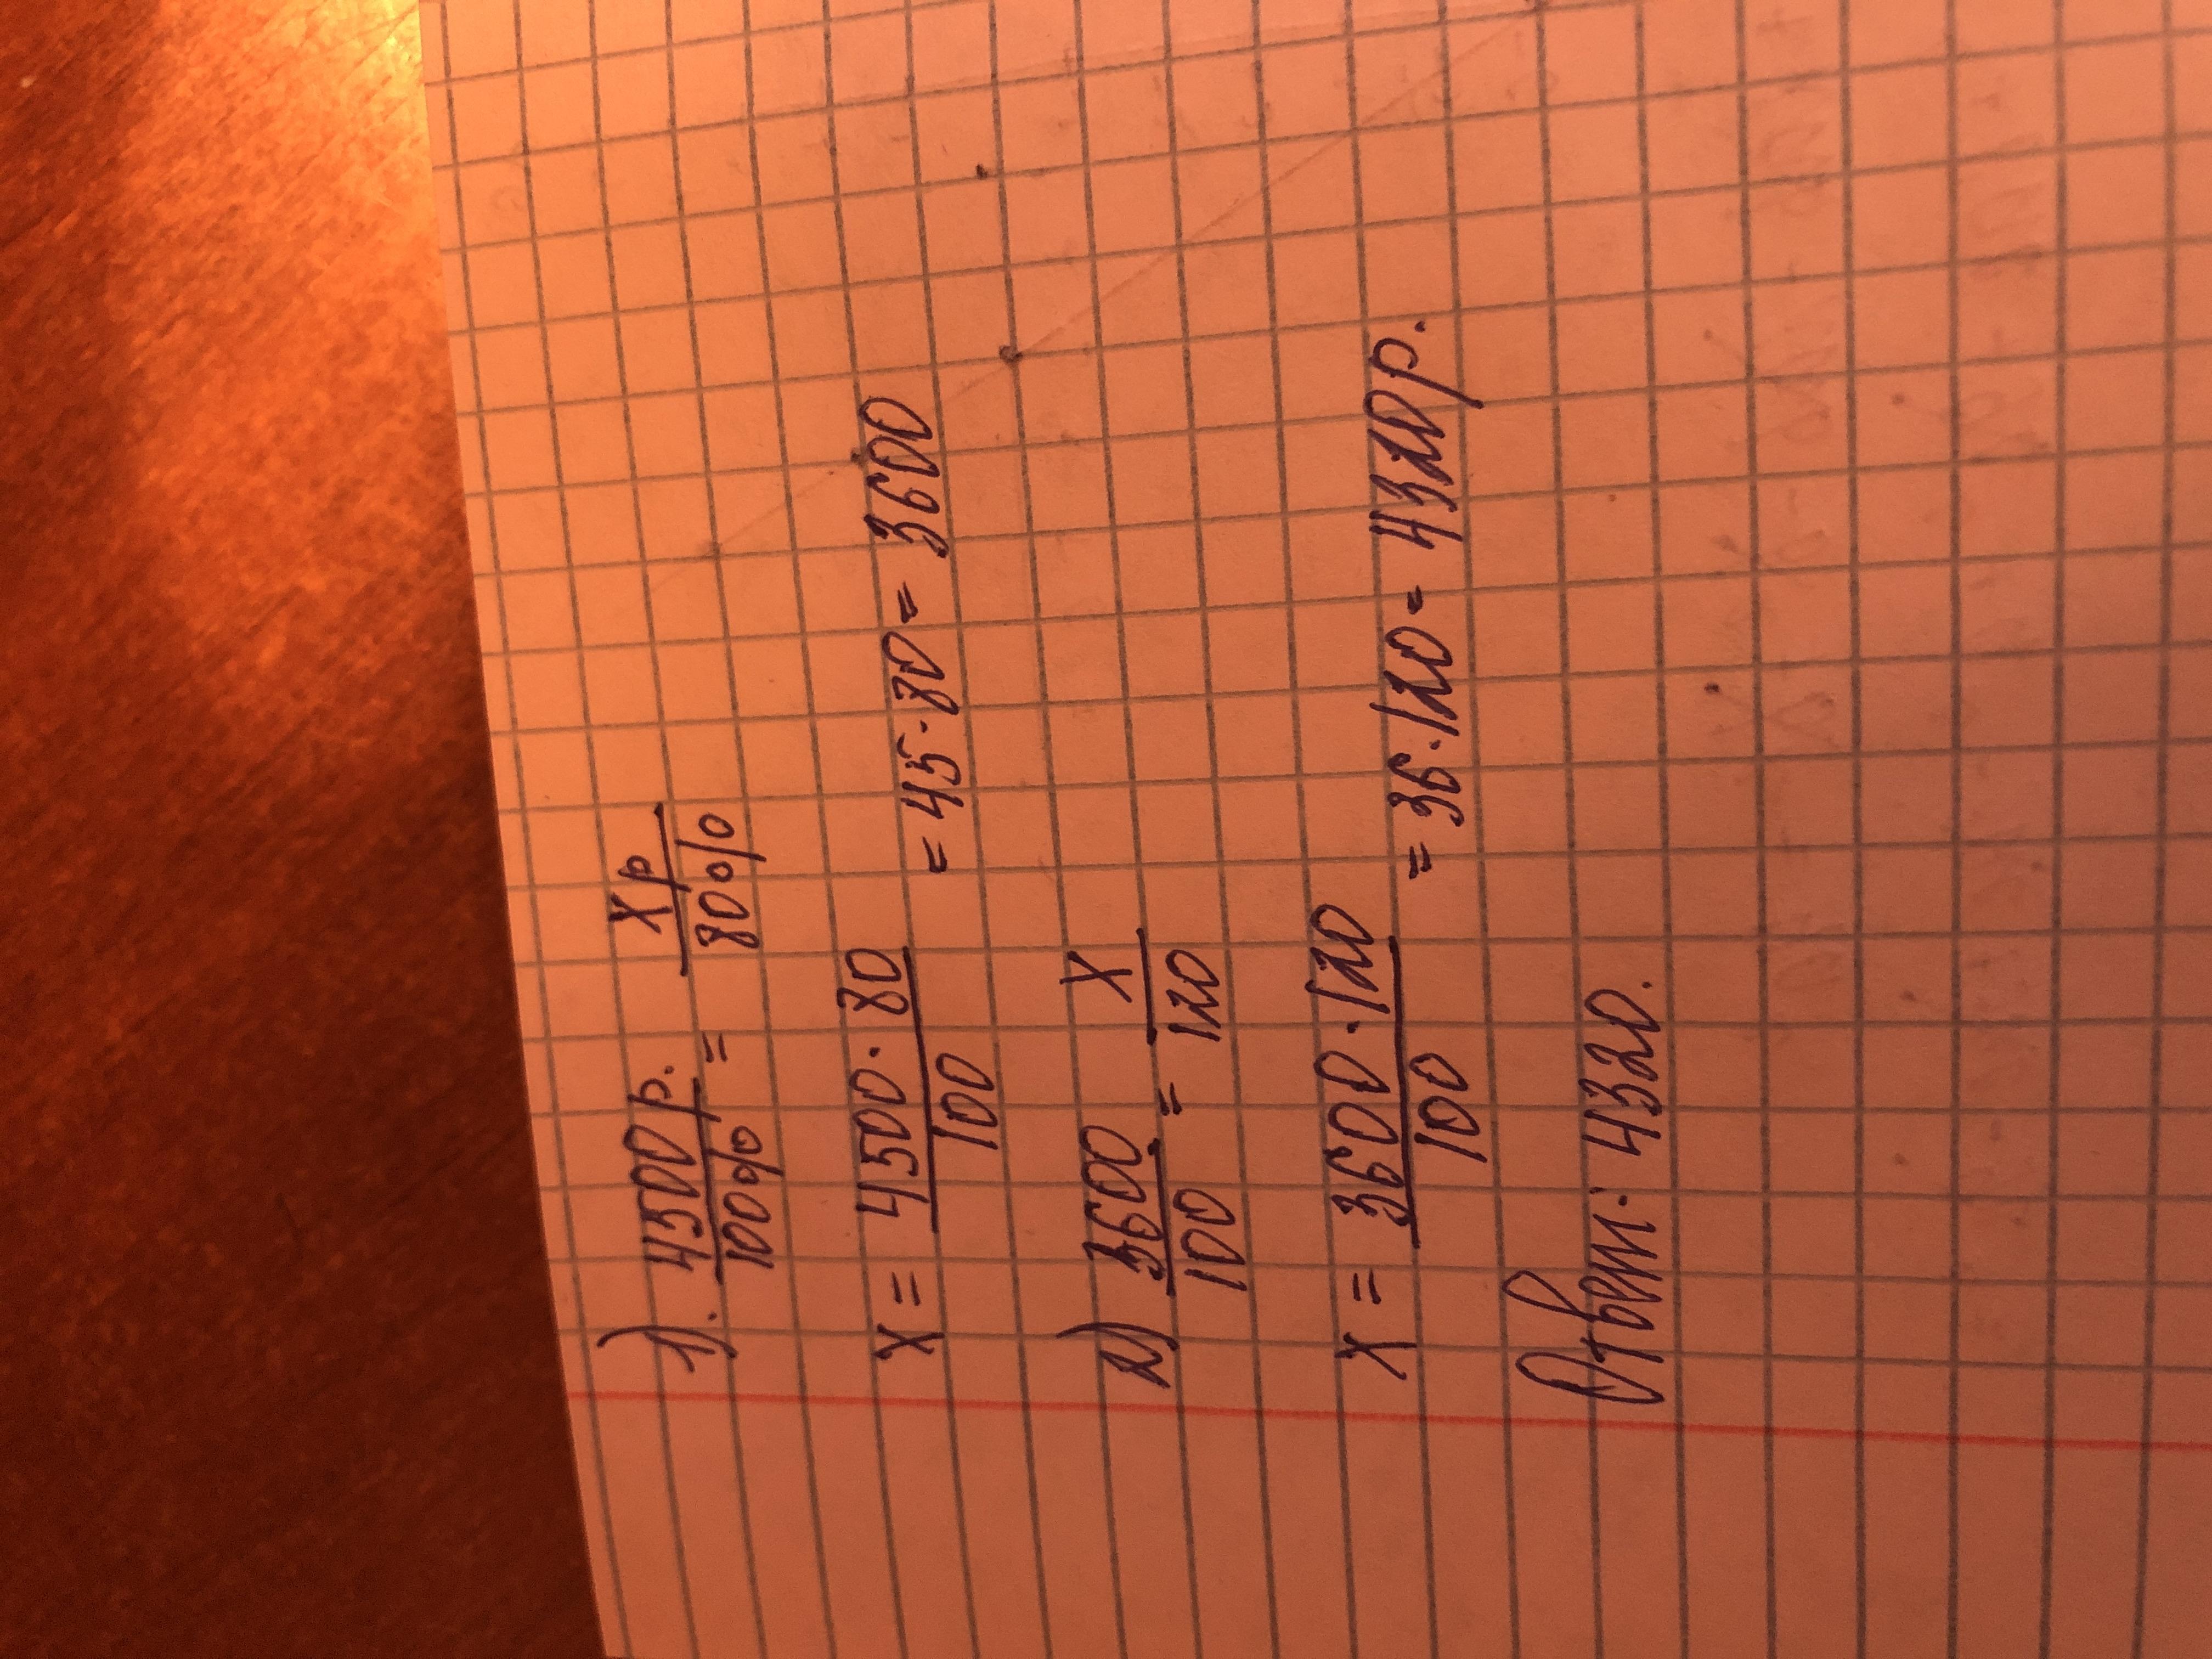 1). 4500р. / 100% = Xр / 80%
X = 4500·80 / 100 = 45·80 = 3600
2) 3600 / 100 = X / 120
X = 3600·120 / 100 = 36·120 = 4320р.
Ответ: 4320.